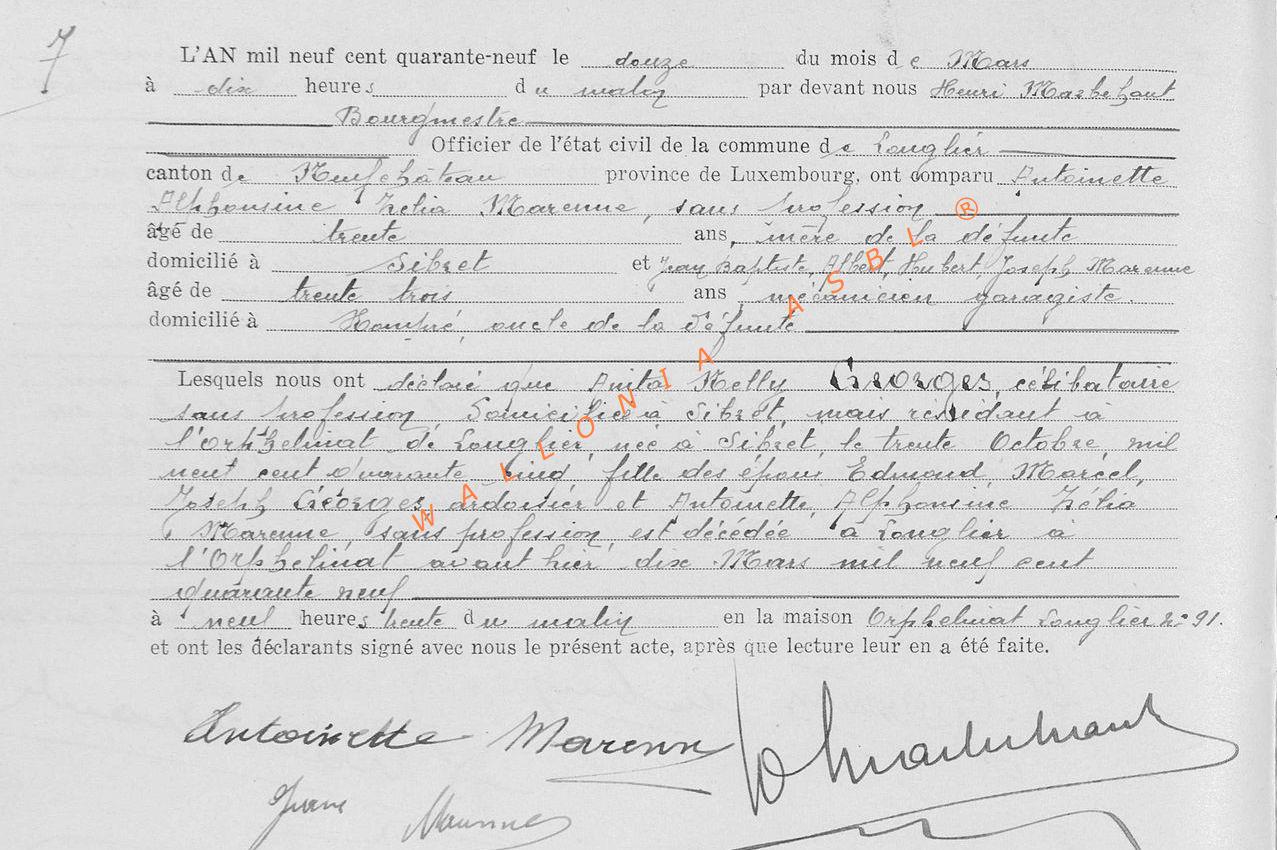 7
L'AN mil neuf cent quarante-neuf le douze du mois de Mars
à dix heures du matin par devant nous Henri Machehaut
Bourgmestre
Officier de l'état civil de la commune de Longlier
canton de Neufchâteau province de Luxembourg, ont comparu Antoinette
Alphonsine Zélia Marenne, sans profession
âgé de trente ans, mère de la défunte
domicilié à Sibret et Jean Baptiste, Albert, Hubert, Joseph Marenne
âgé de trente trois ans, mécanicien garagiste.
domicilié à Hompré, oncle de la défunte
Lesquels nous ont déclaré que Anita Nelly Georges, célibataire
sans profession domiciliée à Sibret, mais résidant à
l'Orphelinat de Longlier, née à Sibret, le trente Octobre, mil
neuf cent quarante cinq, fille des époux Edmond, Marcel,
Joseph Georges, ardoisier et Antoinette, Alphonsine Zélia
Marenne, sans profession, est décédée à Longlier à
l'Orphelinat avant hier dix Mars mil neuf cent
quarante neuf
à neuf heures trente du matin en la maison Orphelinat Longlier n° 91.
et ont les déclarants signé avec nous le présent acte, après que lecture leur en a été faite.
Antoinette Marenne
WALLONIA ASBL ®